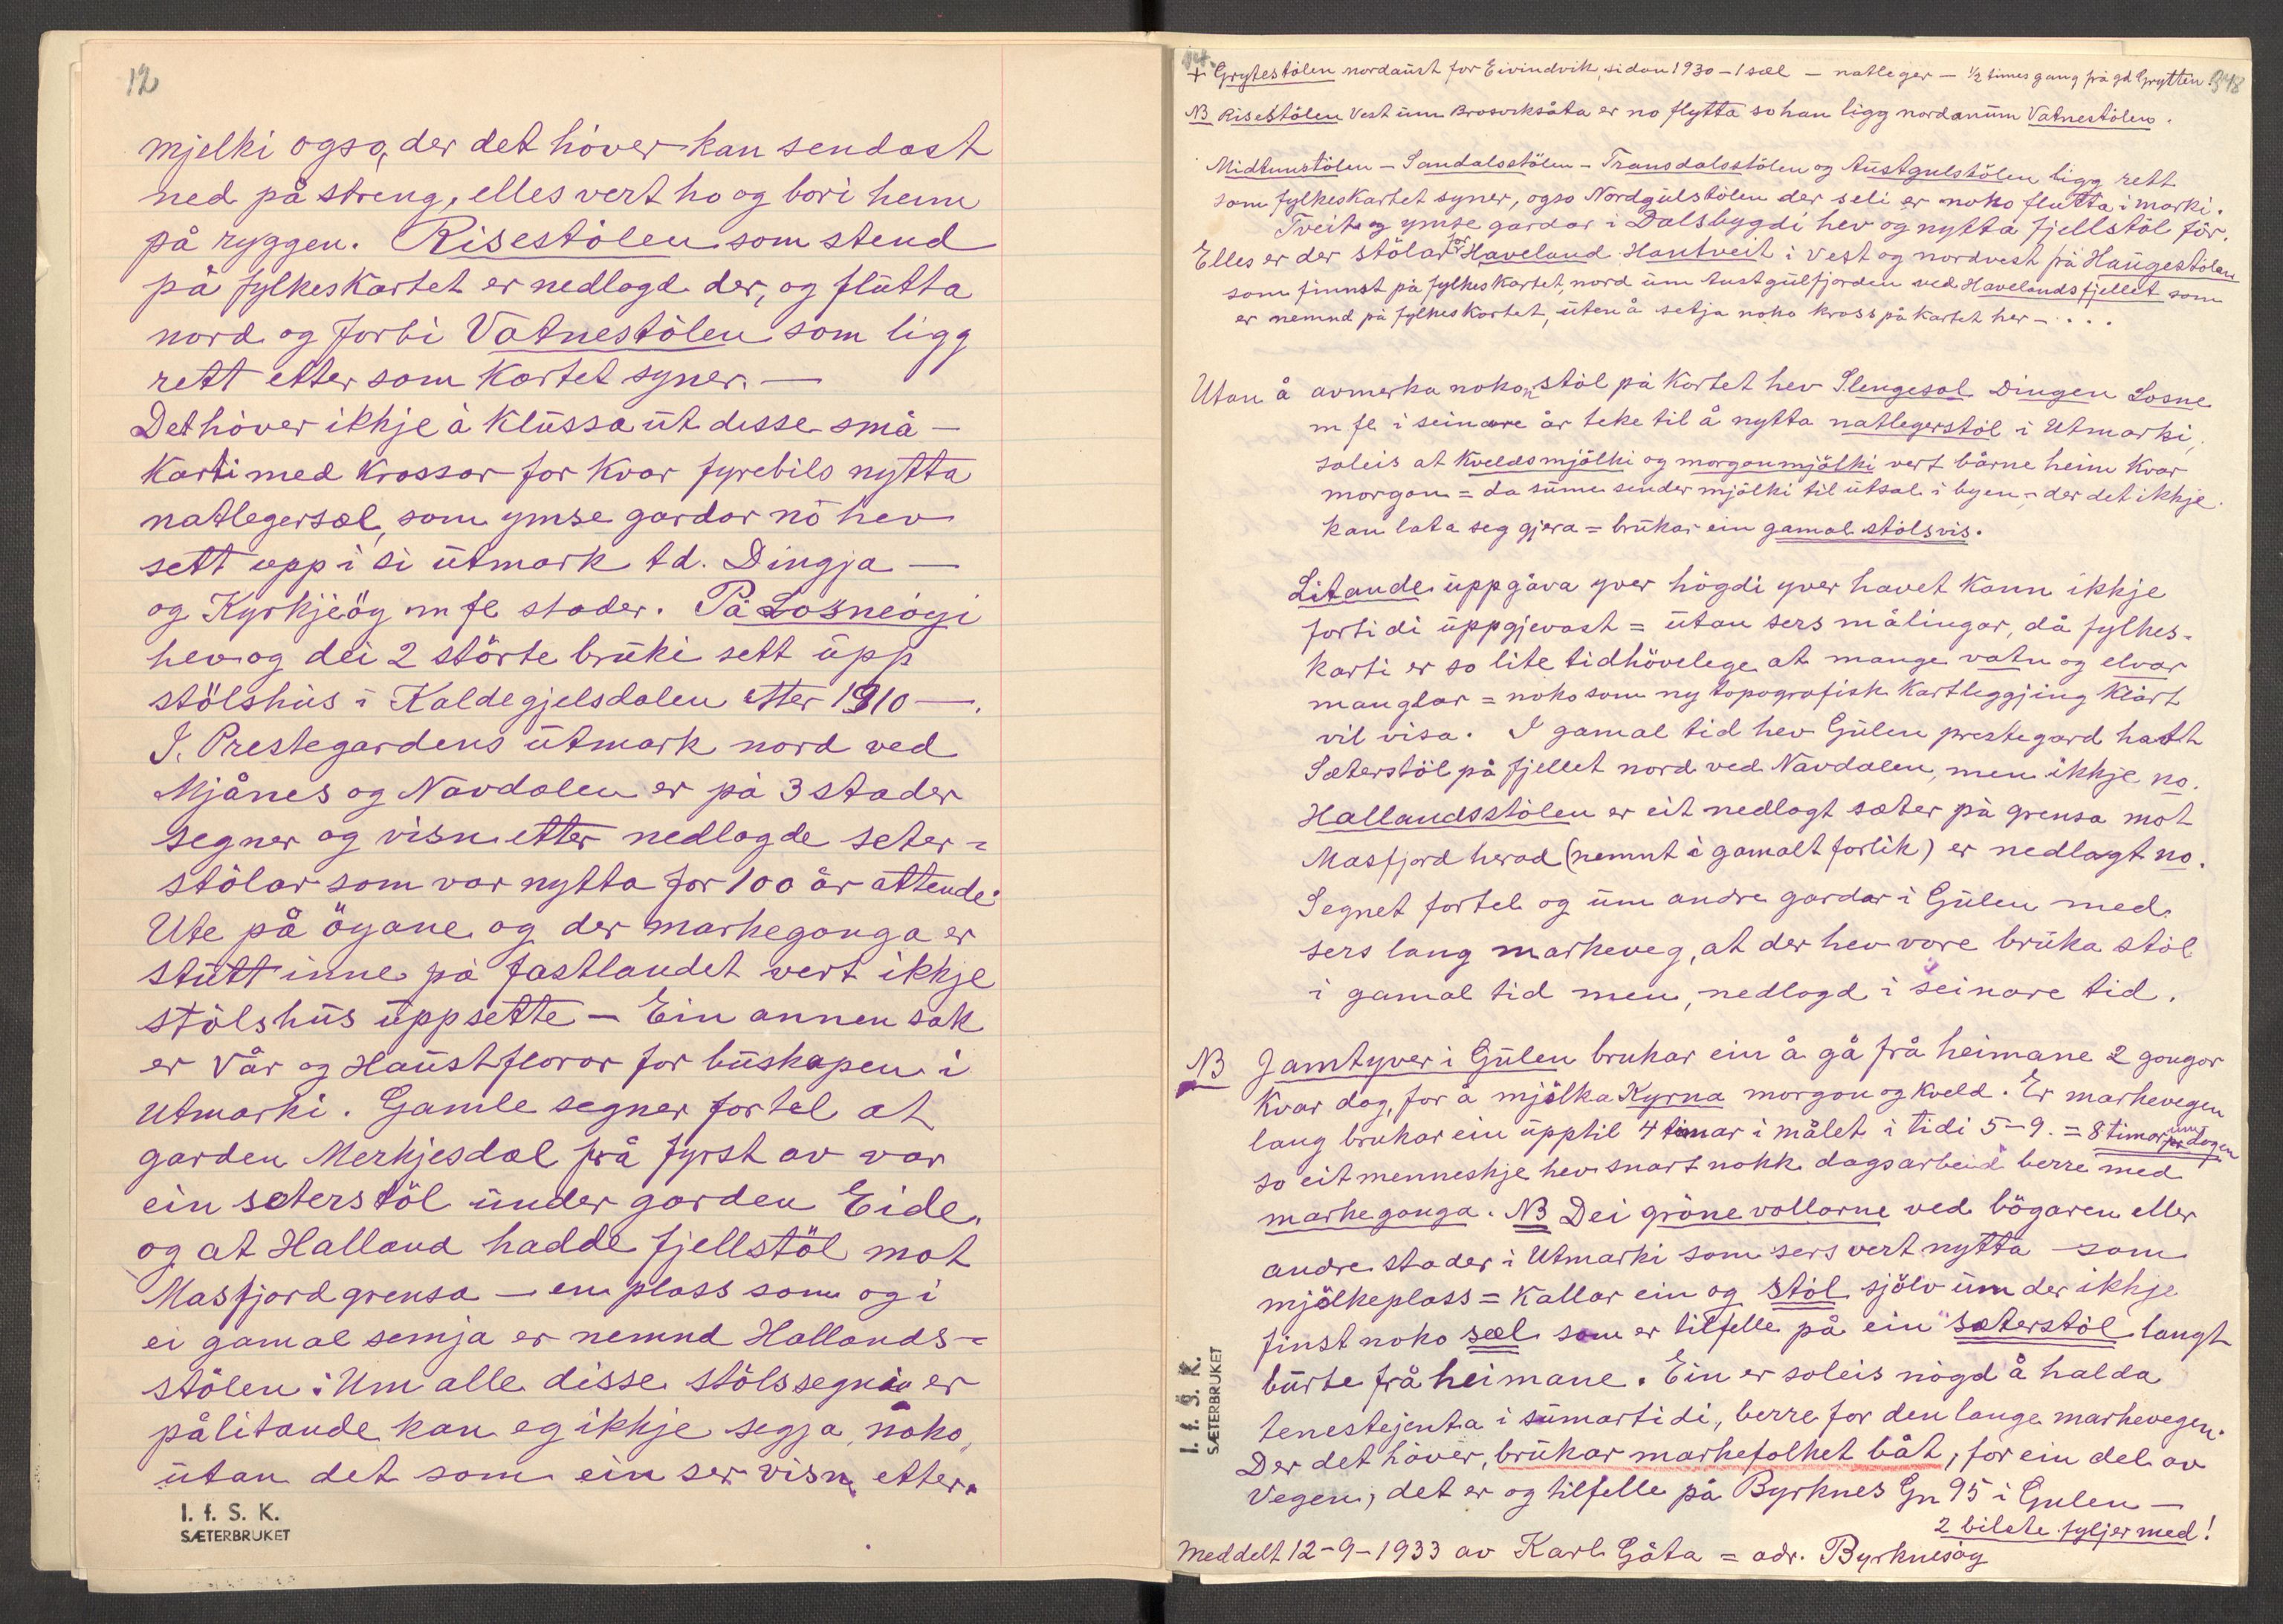 12
mjelki ogso, der det höver kan sendast
ned på streng, elles vert ho og bori heim
på ryggen. Risestölen som stend
på fylkeskartet er nedlagd der, og flutta
nord og forbi Vatnestölen som ligg
rett etter som Kartet syner. —
Det höver ikkje å klussa ut disse små —
Karti med Krossar for Kvar fyrebils nytta
natlegersæl, som ymse gardar no hev
sett upp i si utmark td. Dingja —
og Kyrkjeöy m fl stader. På Losneöyi
hev og dei 2 störte bruki sett upp
stölshus i Kaldegjelsdalen etter 1910 —.
I. Prestegardens utmark nord ved
Mjånes og Navdalen er på 3 stader
segner og visn etter nedlagde seter-
stölar som var nytta for 100 år attende.
Ute på öyane og der markegonga er
stutt inne på fastlandet vert ikkje
stölshus uppsette — Ein annen sak
er Vår og Haustfloror for buskapen i
utmarki. Gamle segner fortel at
garden Merkjesdal frå fyrst av var
ein seterstöl under garden Eide.
og at Halland hadde fjellstöl mot
Masfjord grensa — en plass som og i
ei gamal semja er nemnd Hallands-
stölen: Um alle disse stölssegnir er
pålitande kan eg ikkje segja noko,
utan det som ein ser visn etter.
I. f. S. K.
SÆTERBRUKET
+ Grytestölen nordaust for Eivindvik, sidan 1930 – 1 sæl – natleger – ½ times gang frå gd Grytten 948
NB Risestölen Vest um Brosviksåta er no flytta so han ligg nordanum Vatnestölen.
Midtunstölen – Sandalsstölen – Transdalsstölen og Austgulstölen ligg rett
som fylkeskartet syner, ogso Nordgulstölen der seli er noko flutta i marki.
Tveit og ymse gardar i Dalsbygdi hev og nytta fjellstöl för.
Elles er der stölar for Haveland Hantveit i vest og nordvest frå Haugestölen
som finnst på fylkeskartet, nord um Austgulfjorden ved Havelandsfjellet som
er nemnd på fylkeskartet, uten å setja noko kross på kartet her – . . .
Utan å avmerka nokon stöl på Kartet hev Slengesol Dingen Losne
m fl i seinare år teke til å nytta natlegerstöl i Utmarki,
soleis at Kveldsmjölki og morgonmjölki vert bårne heim Kvar
morgon = da sume sender mjölki til utsal i byen – der det ikkje
kan lata seg gjera = brukar ein gamal stölsvis.
Litande uppgåva yver högdi yver havet Kann ikkje
fortidi uppgjevast = utan sers målingar, då fylkes-
karti er so lite tidhövelege at mange vatn og elvar
manglar = noko som ny topografisk Kartleggjing Klårt
vil visa. I gamal tid hev Gulen prestegard hatt
Sæterstöl på fjellet nord ved Navdalen, men ikkje no.
Hallandsstölen er eit nedlagt sæter på grensa mot
Masfjord herad (nemnt i gamalt forlik) er nedlagt no.
Segnet fortel og um andre gardar i Gulen med
sers lang markeveg, at der hev vore bruka stöl
i gamal tid men, nedlagd i seinare tid.
NB Jamtyver i Gulen brukar ein å gå frå heimane 2 gongor
Kvar dag, for å mjölka Kyrna morgon og kveld. Er markevegen
lang brukar ein upptil 4 timar i målet i tidi 5–9. = 8 timar um dagen
so eit menneskje hev snart nokk dagsarbeid berre med
markegonga. NB Dei gröne vollarne ved bögaren eller
andre stader i Utmarki som sers vert nytta som
mjölkeplass = Kallar ein og stöl sjölv um der ikkje
finst noko sæl som er tilfelle på ein sæterstöl langt
burte frå heimane. Ein er soleis nögd å halda
tenestejenta i sumartidi, berre for den lange markevegen.
Der det höver, brukar markefolket båt, for ein del av
Vegen, det er og tilfelle på Byrknes Gn 95 i Gulen —
2 bilete fyljer med!
Meddelt 12–9–1933 av Karl Gåta = adr. Byrknesöy
I. f. S. K.
SÆTERBRUKET